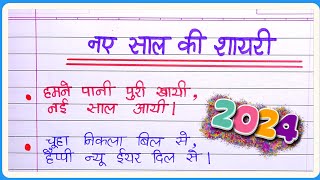 नए साल की शायरी
हमने पानी पुरी खायी,
नई साल आयी।
2024
चूहा निकला बिल से,
हैप्पी न्यू ईयर दिल से।